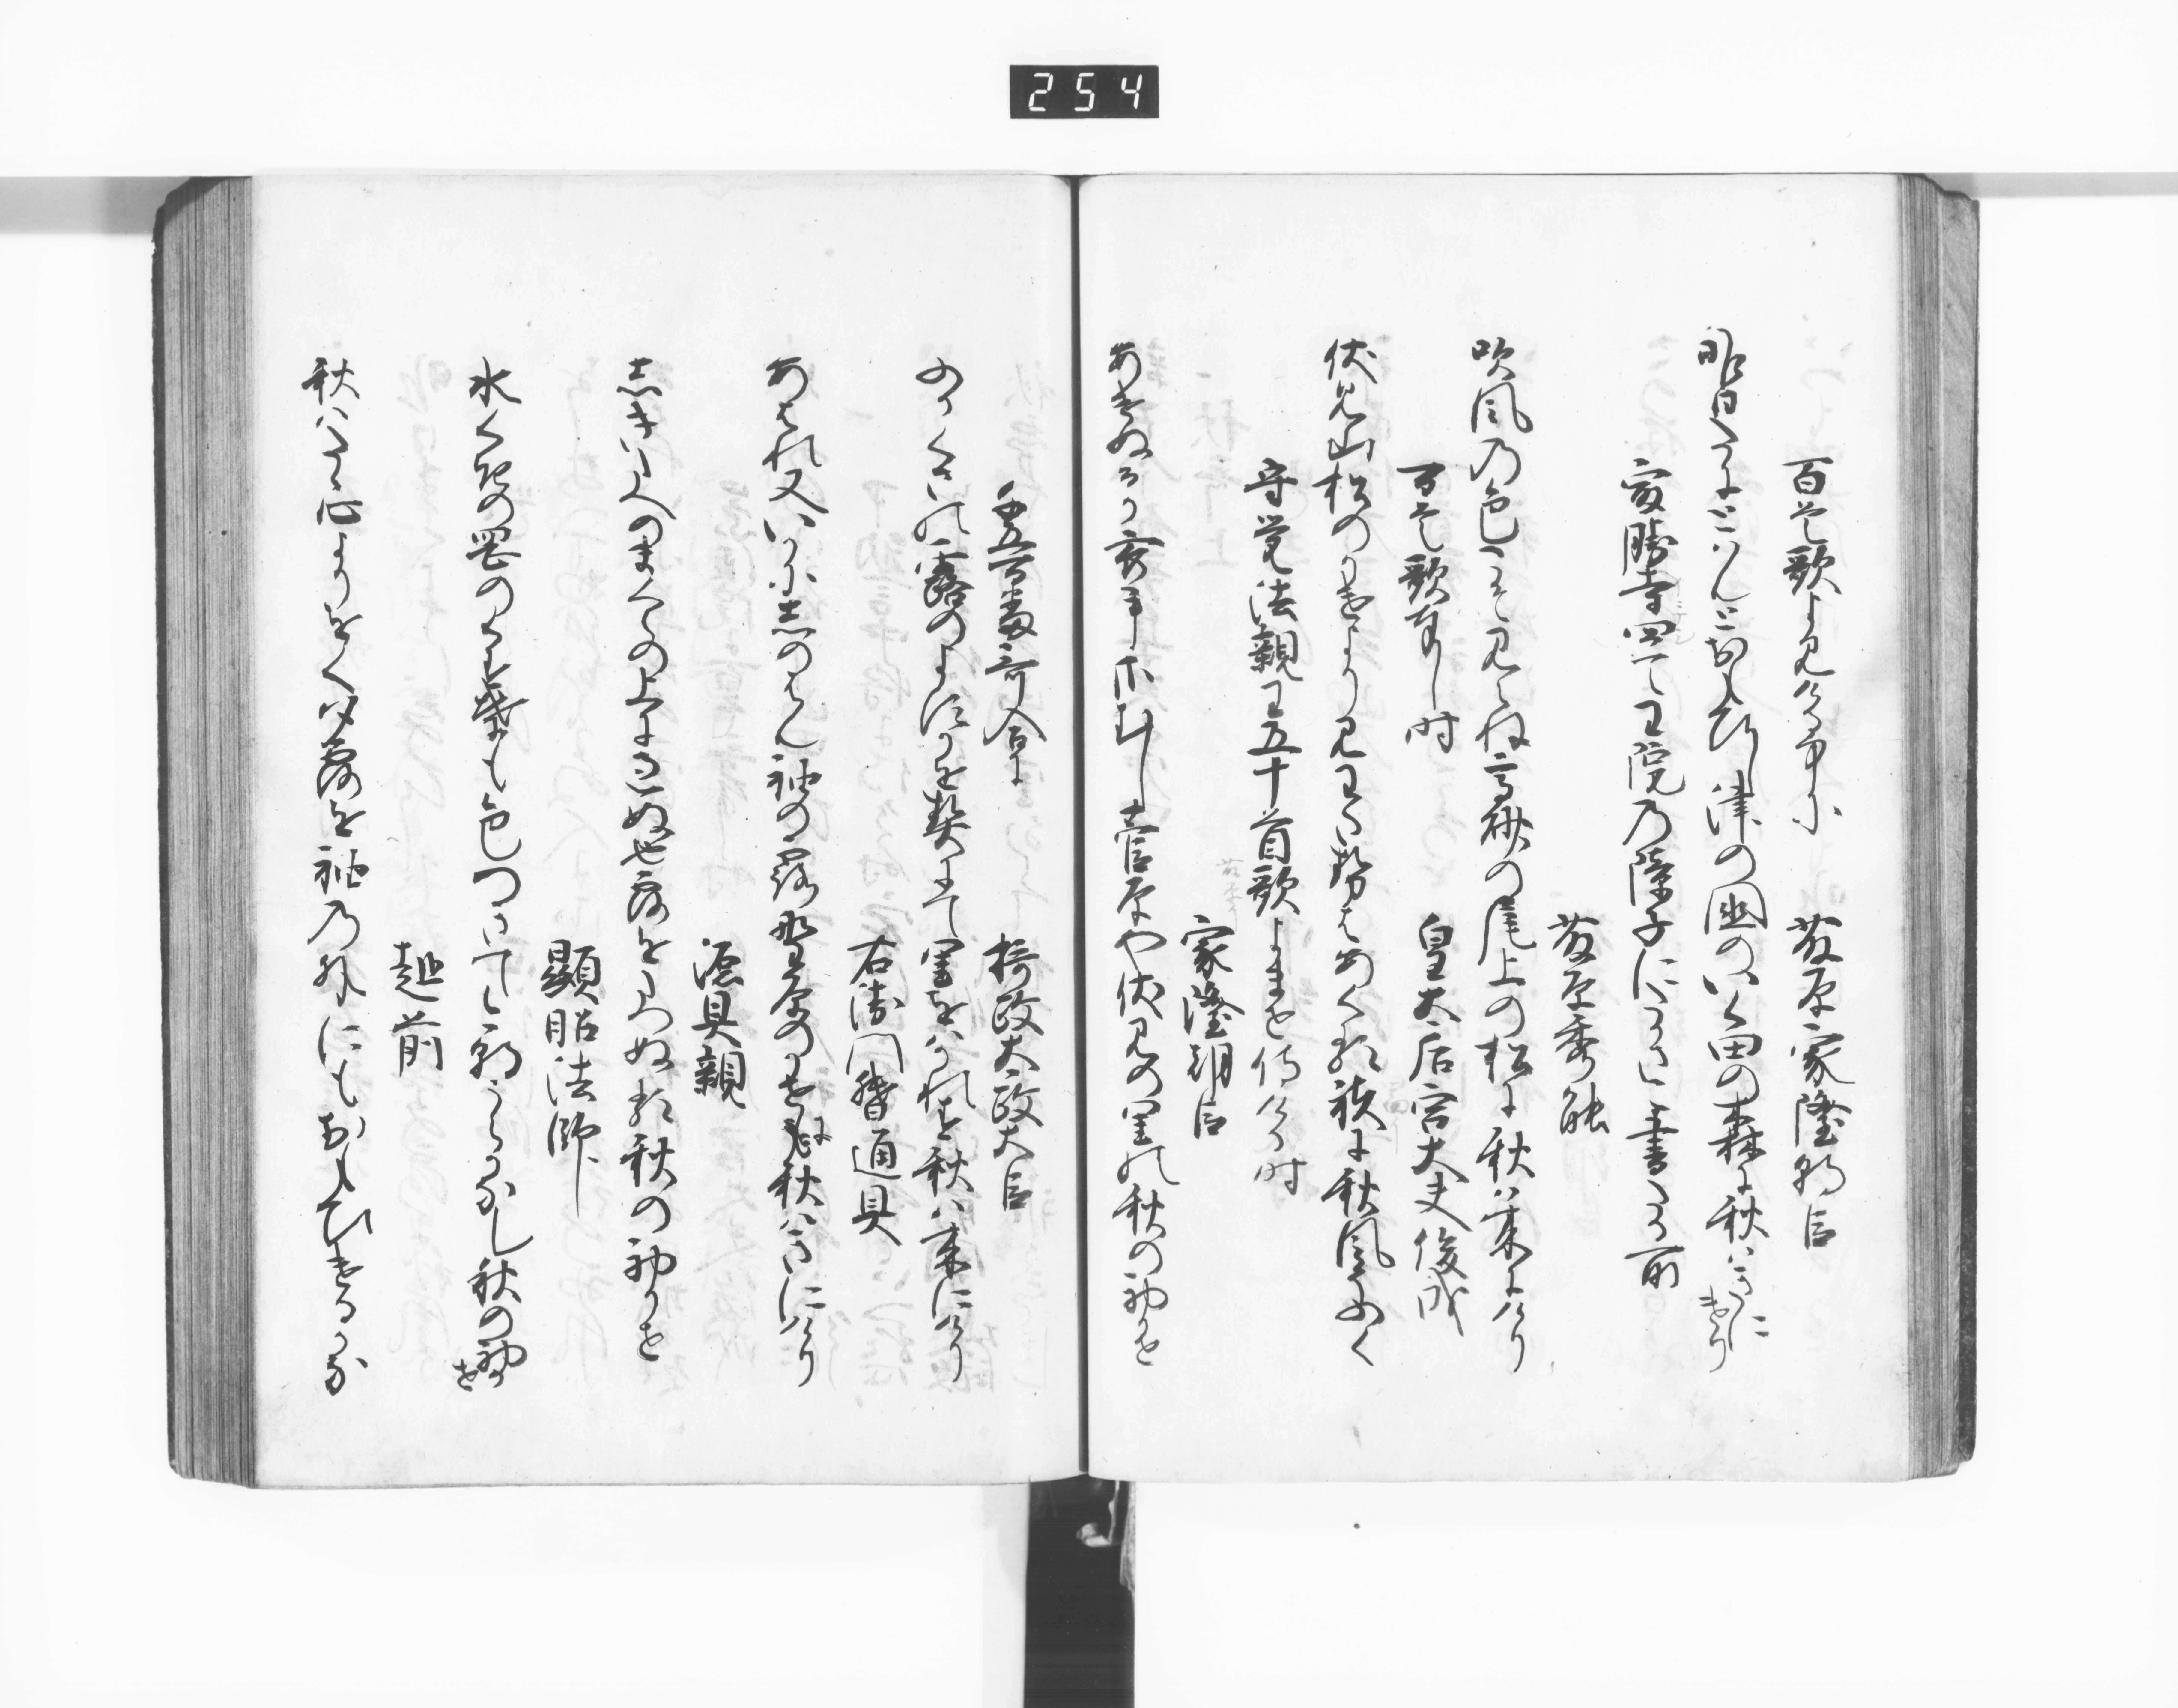 254
百首歌よみ侍し中に　藤原家隆朝臣
昨日たにとはんとおもひし津の国のいく田の森に秋はきに
けり
最勝四天王院の障子にたかさこ書たる所
藤原秀能
吹風の色こそ見えね高砂の尾上の松に秋は来にけり
百首歌奉し時　皇太后宮大夫俊成
伏見山松のかけより見わたせはあくる田に秋風そふく
守覚法親王五十首歌よませ侍ける時
家隆朝臣
あけぬるか衣手さむし菅原や伏見の里の秋の初かせ
千五百番哥合に　摂政太政大臣
ふかくさの露のよすかを契にて里をはかれす秋は来にけり
右衛門督通具
あはれ又いかに忍はん袖の露野原の風に秋はきにけり
源具親
しきたへの枕のうへにすきぬ也露をたつぬる秋の初かせ
顕昭法師
水くきの岡のくす葉も色つきてけさうらかなし秋の初
かせ
越前
秋はたゝ心よりをく夕露を袖の外にもおもひけるかな